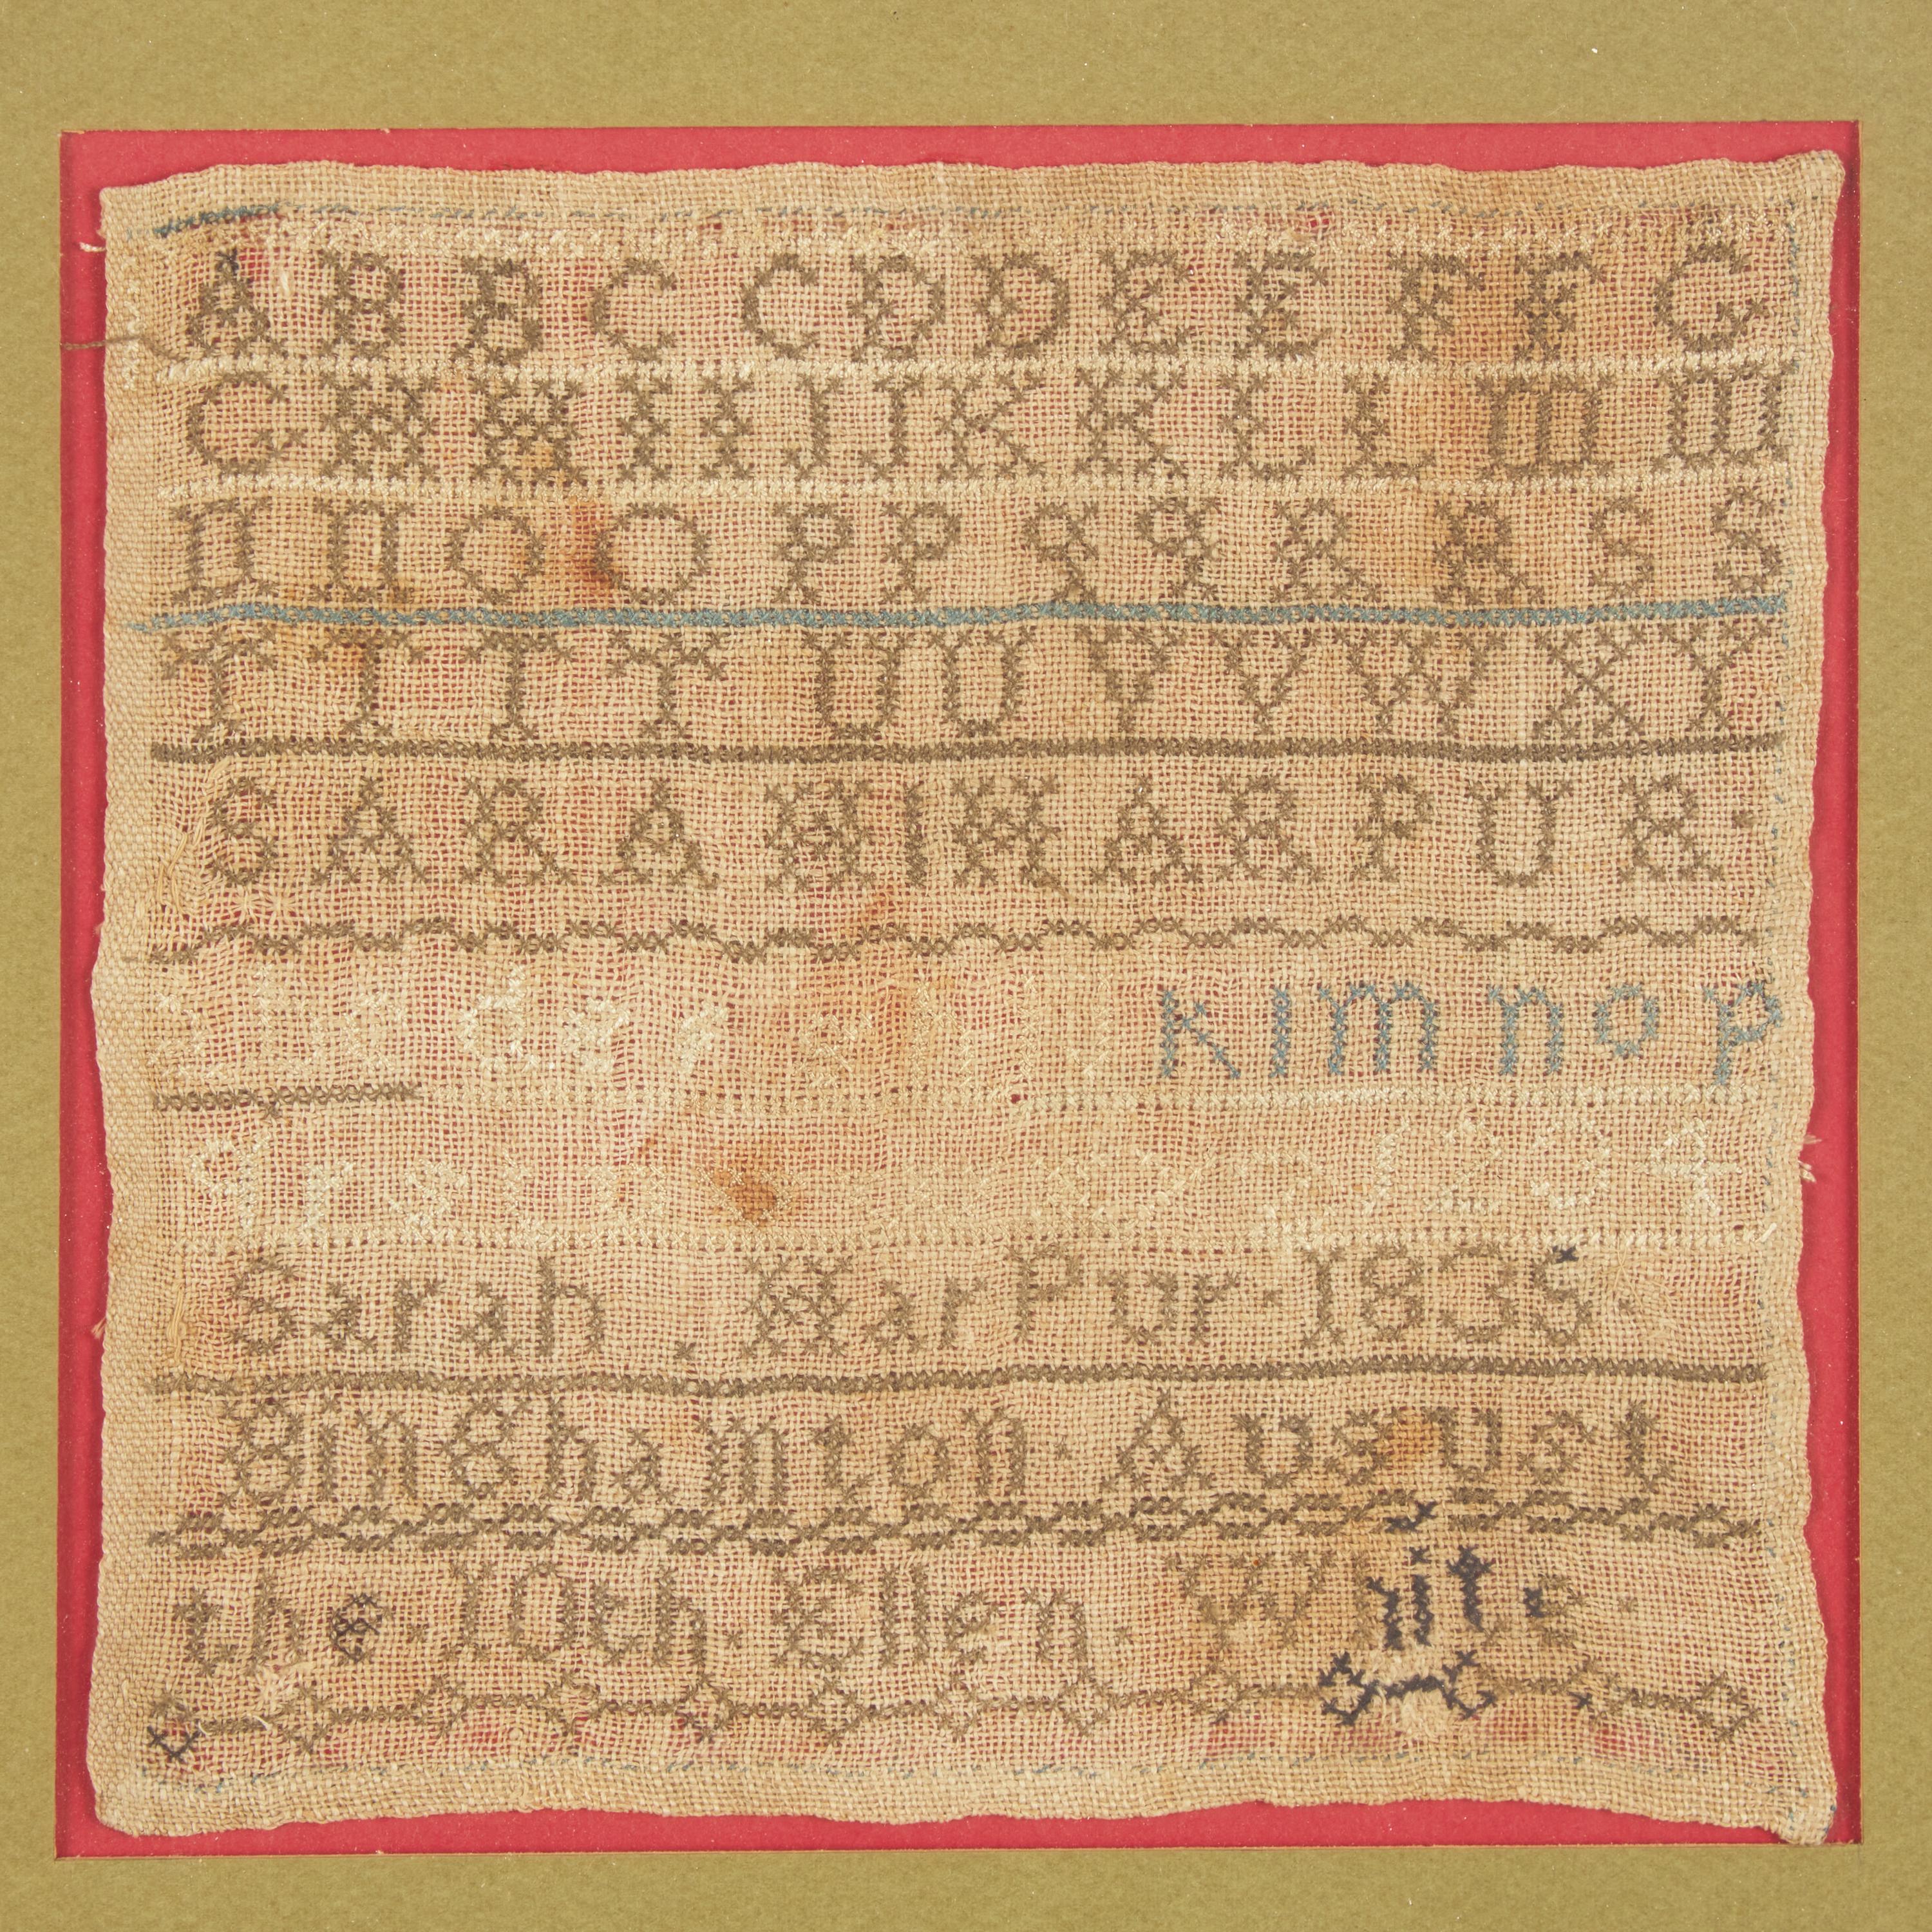 A B B C C D D E E F F G
G H H I I J J K K L L M M
N N O O P P Q Q R R S S
T T T T U U V V W W X Y
SARAH HARPUR.
a b c d e f g h i k l m n o p
q r s 1 2 3 4
Sarah . HarPur . 1835 .
Binghamton . August
the 10th . Ellen . White .